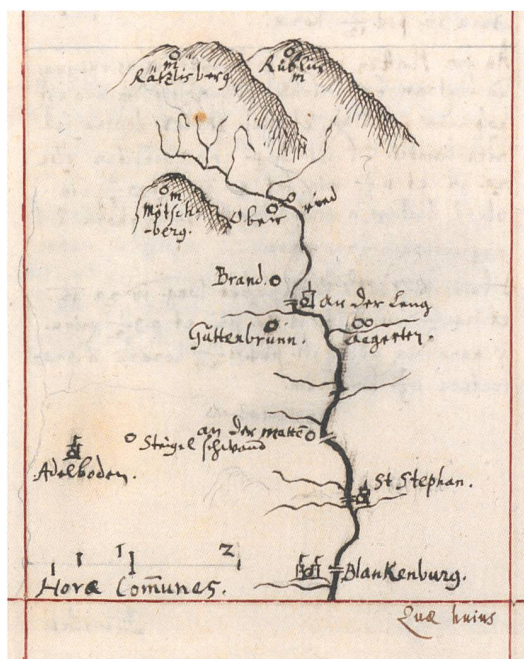 Rätzlisberg
m
Rüblin
m
m
Mötsch
-berg.
Oberried
Brand.
an der Leng
Guttenbrunn.
aegerten.
an der matte
Steigel schwand
Adelboden.
St Stephan.
1
2
Blankenburg.
Horæ Com̄unes.
Quæ huius